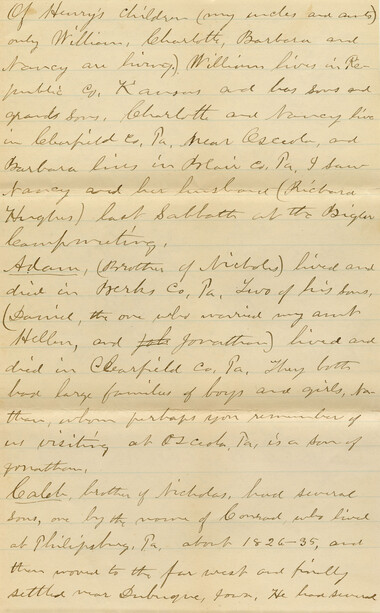 Of Henry's children (my uncles and aunts)
only William, Charlott, Barbara and
Nancy are living) William lives in Re-
public Co, Kansas and has sons and
grand sons, Charlott and Nancy live
in Clearfield Co, Pa, near Osceola, and
Barbara lives in Blair Co, Pa, I saw
Nancy and her husband (Richard
Hughes) last Sabbath at the Bigler
Campmeeting.
Adam, (Brother of Nicholas) lived and
died in Berks Co, Pa. Two of his sons,
(Daniel, the one who married my aunt
Hellen, and Joh Jonathan) lived and
died in Clearfield Co, Pa. They both
had large families of boys and girls, Na-
than, whom perhaps you remember of
us visiting at Osceola, Pa, is a son of
Jonathan.
Caleb, brother of Nicholas, had several
sons, one by the name of Conrad, who lived
at Philipsburg, Pa, about 1826-35, and
then moved to the far west and finally
settled near Dubuque, Iowa, He had several